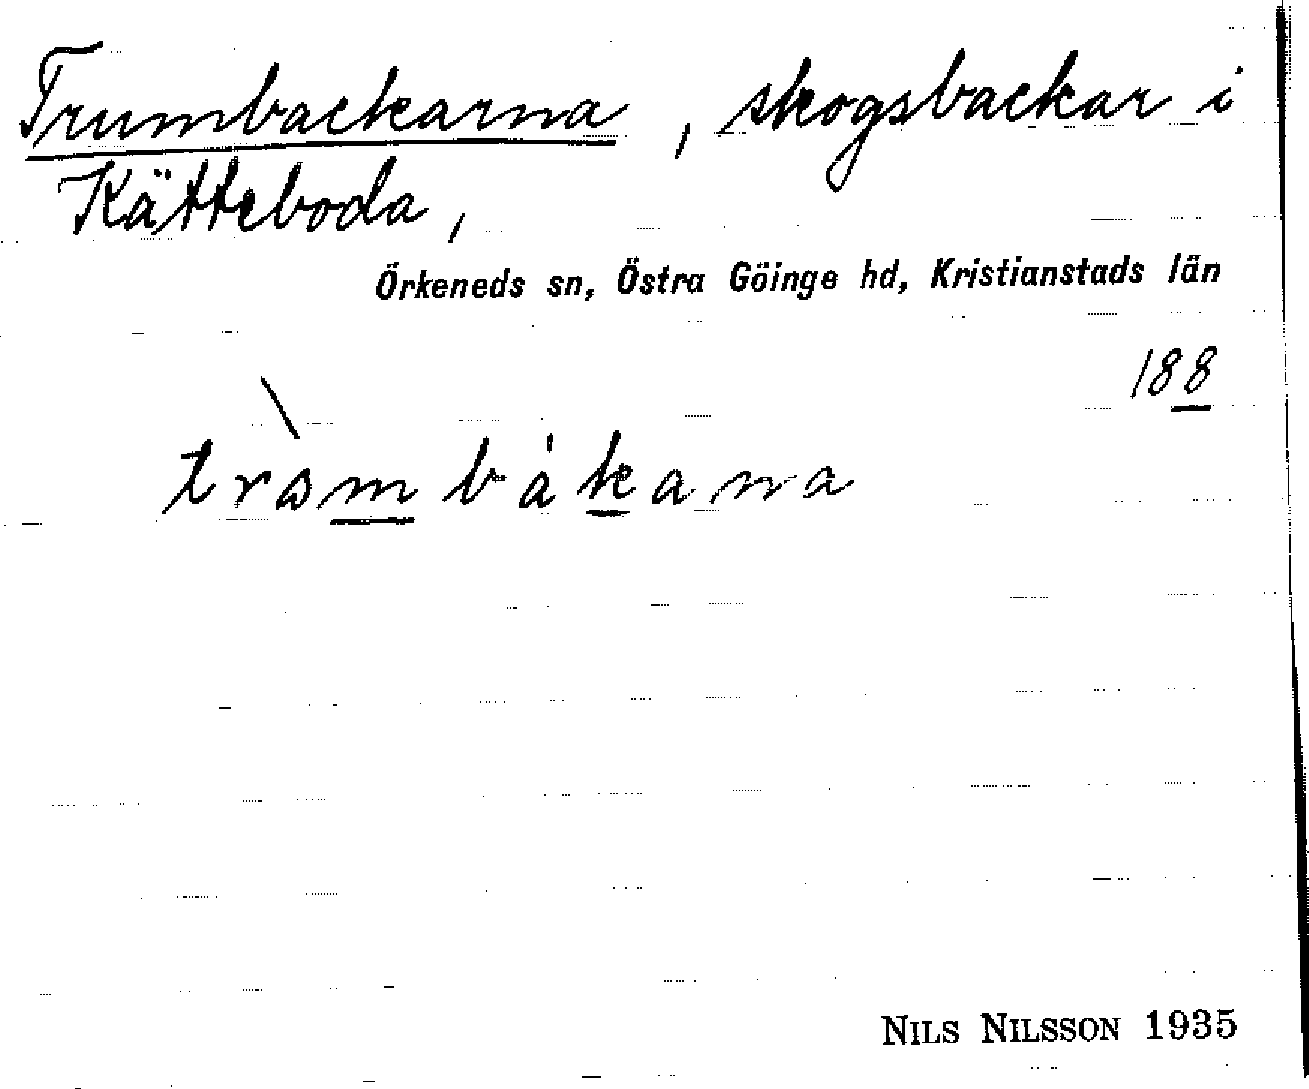 Trumbackarna, skogsbackar i
Kätteboda,
Örkeneds sn, Östra Göinge hd, Kristianstads län
188
NILS NILSSON 1935